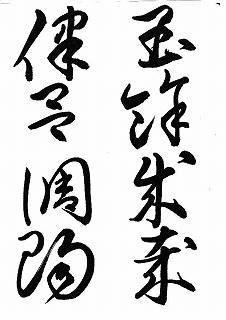 閏餘成歳
律呂調陽